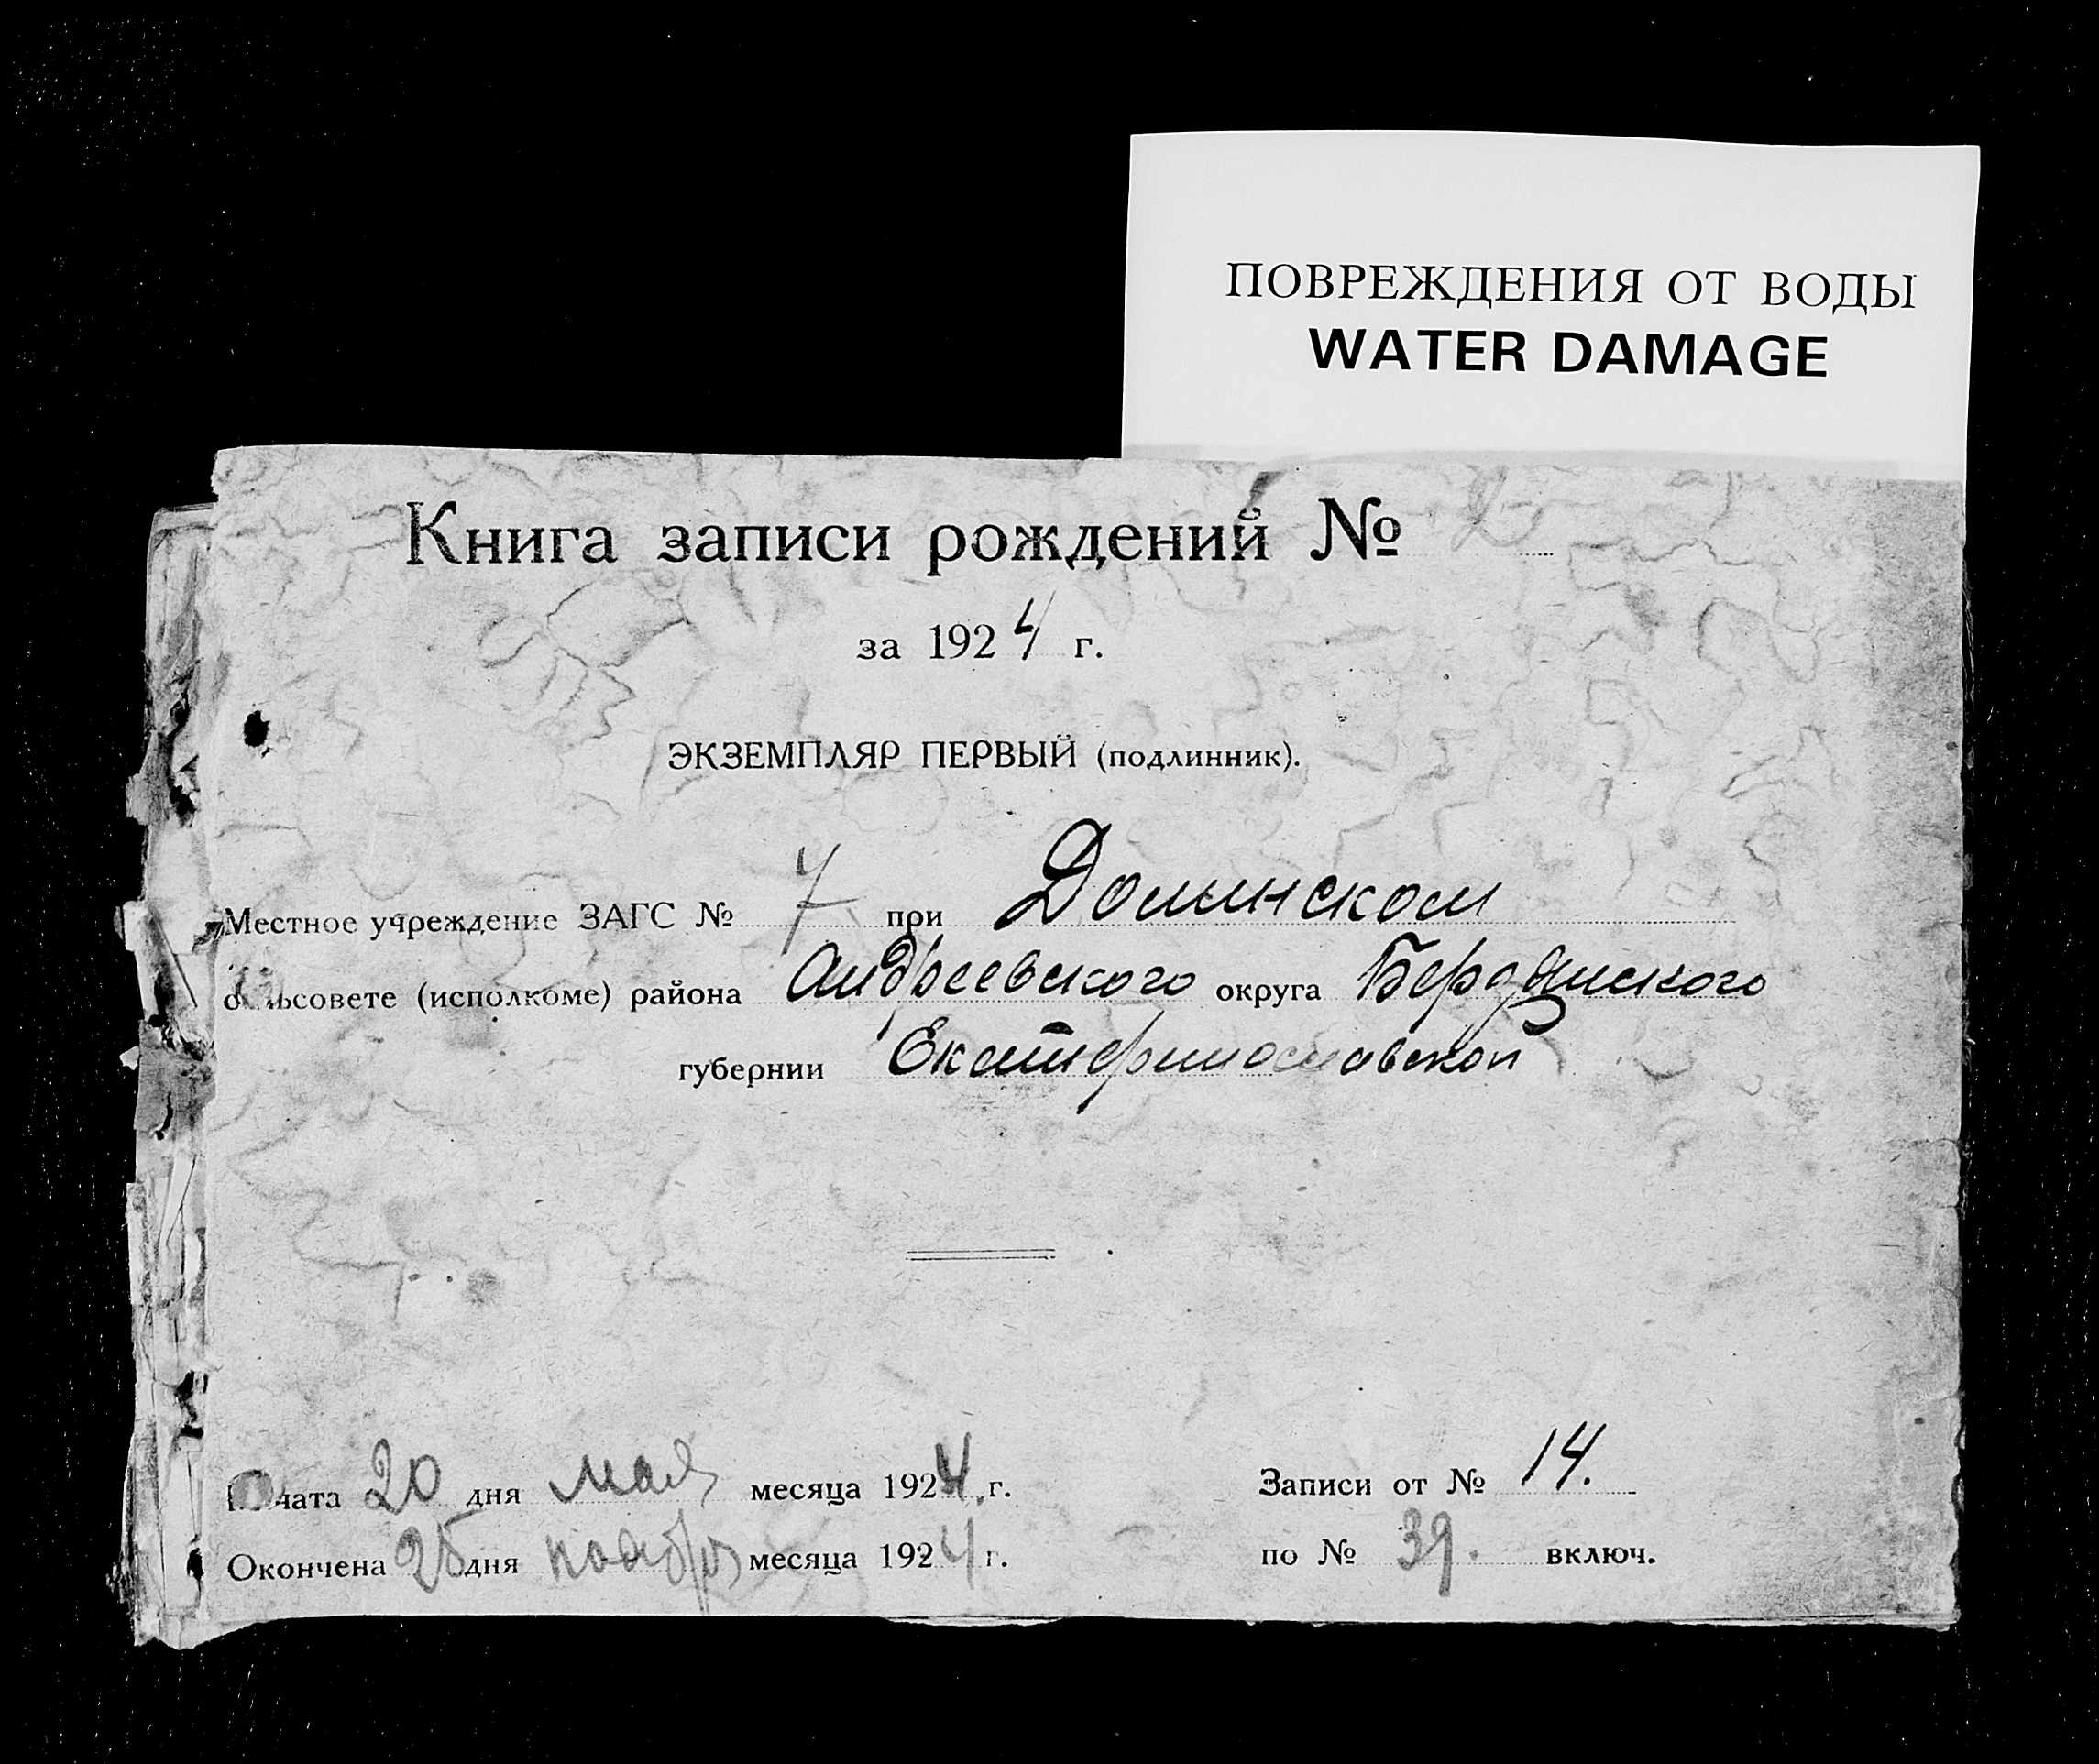 ПОВРЕЖДЕНИЯ ОТ ВОДЫ
WATER DAMAGE
Книга записи рождений № 2
за 1924 г.
ЭКЗЕМПЛЯР ПЕРВЫЙ (подлинник).
Местное учреждение ЗАГС № 7 при Долинском
сельсовете (исполкоме) района Андреевского округа Бердянского
губернии Екатеринославской
Начата 20 дня мая месяца 1924 г. Записи от № 14.
Окончена дня ноября месяца 1924 г. по № 39. включ.